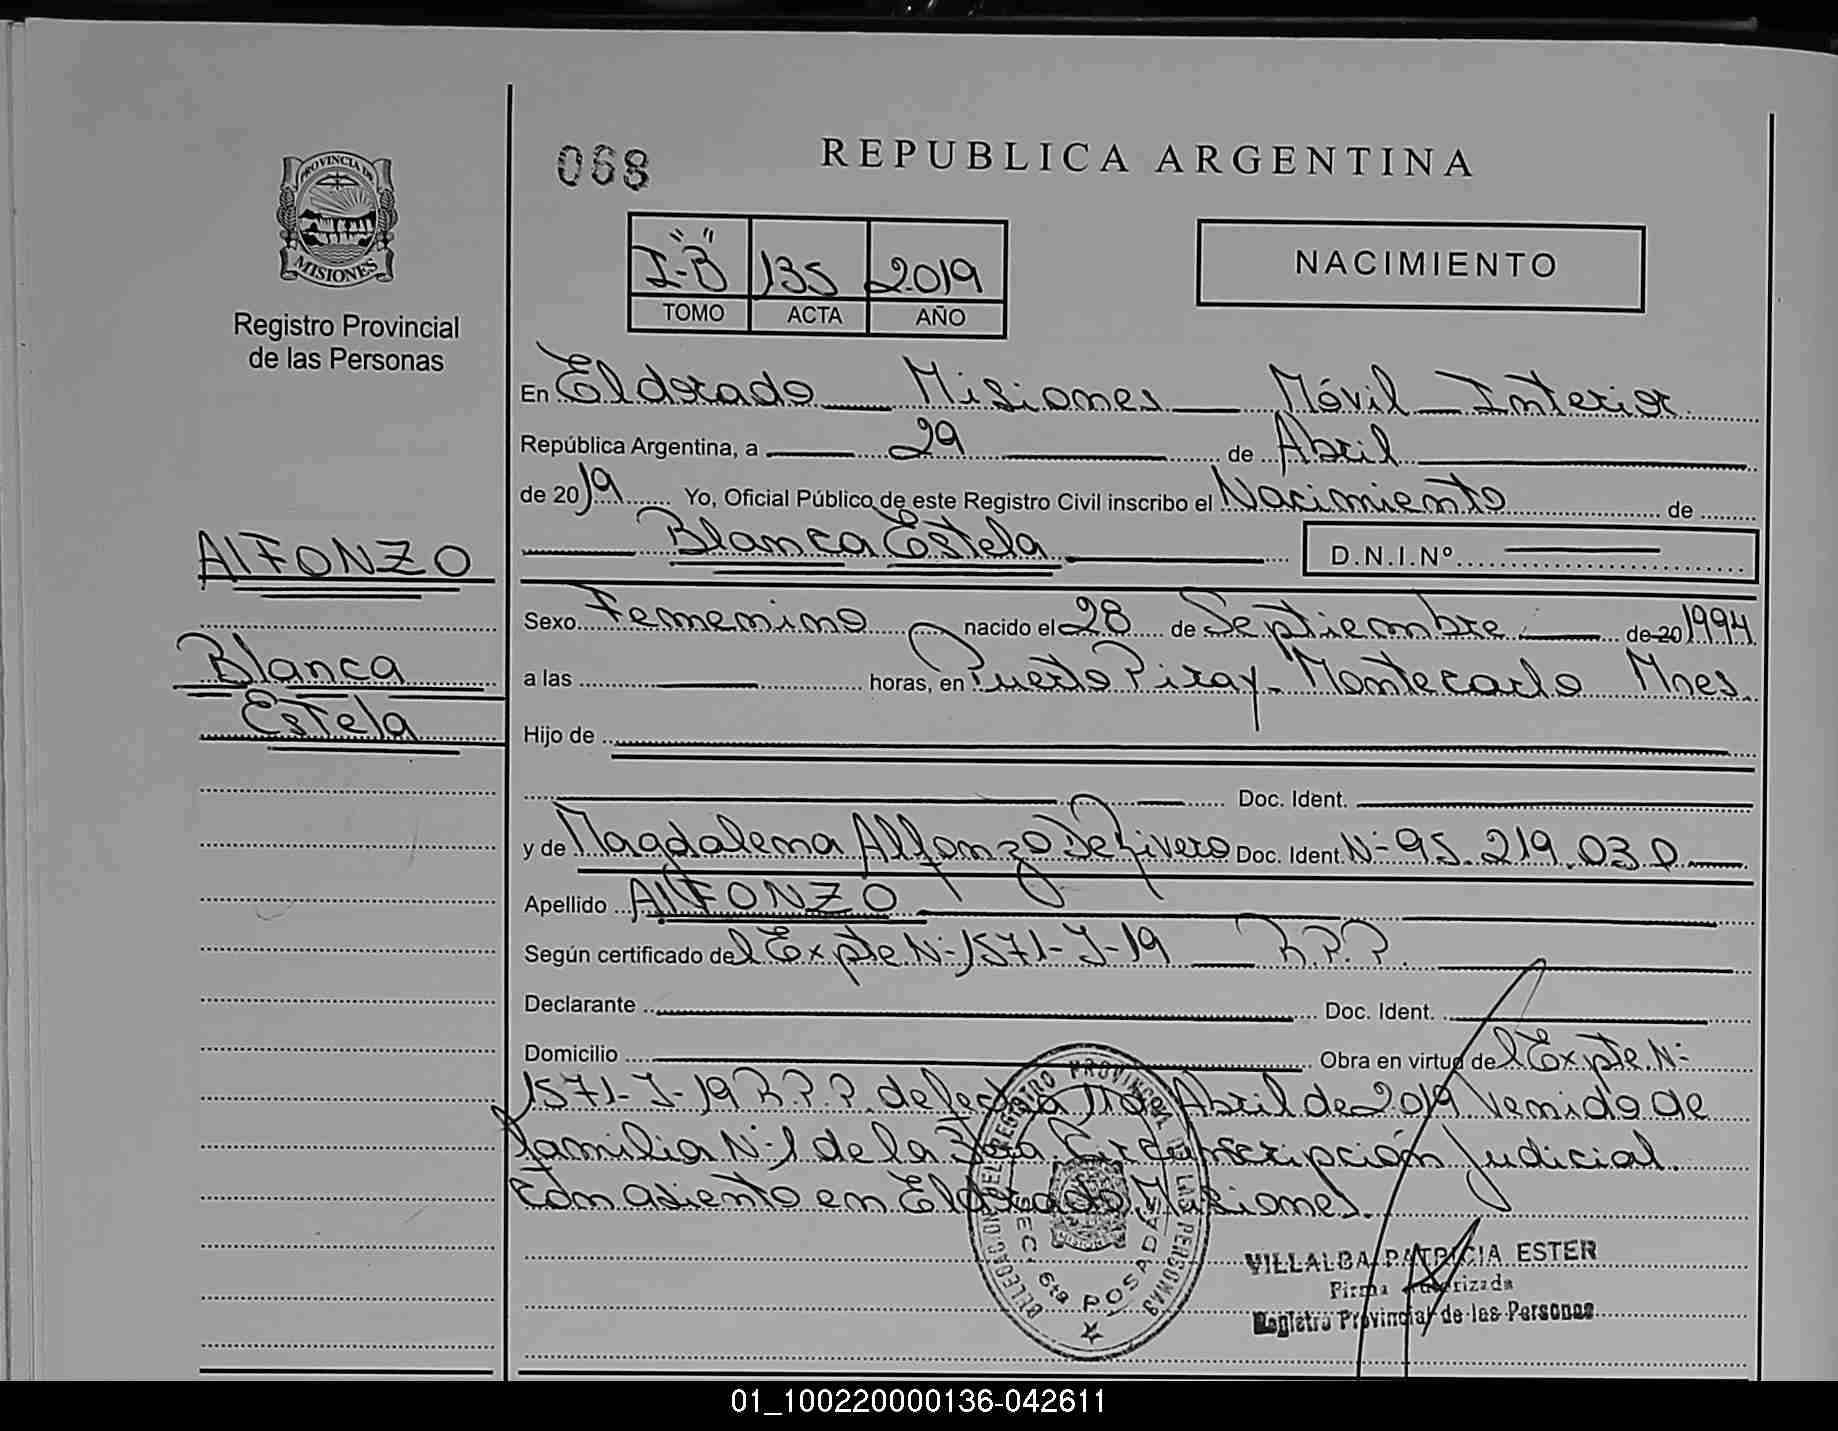 PROVINCIA DE
MISIONES
Registro Provincial
de las Personas
ALFONZO
Blanca
Estela
068
REPUBLICA ARGENTINA
"I-B" 135 2019
TOMO ACTA AÑO
NACIMIENTO
En Eldorado Misiones Móvil Interior
República Argentina, a 29 de Abril
de 2019 Yo, Oficial Público de este Registro Civil inscribo el Nacimiento de
Blanca Estela D.N.I.Nº
Sexo Femenino nacido el 28 de Septiembre de 20 1994
a las horas, en Puerto Piray - Montecarlo Mnes.
Hijo de
Doc. Ident.
y de Magdalena Alfonzo De Rivero Doc. Ident. Nº 95.219.030
Apellido ALFONZO
Según certificado del Expte Nº 1571-J-19 R.P.P.
Declarante Doc. Ident.
Domicilio Obra en virtud del Expte. Nº
1571-J-19 R.P.P. de fecha 11 de Abril de 2019 Venido de
familia Nº 1 de la 3era. Circunscripción Judicial.
Con asiento en Eldorado, Misiones.
DELEGACION DEL REGISTRO PROVINCIAL DE LAS PERSONAS
SECC. 6ta POSADAS
MISIONES
VILLALBA PATRICIA ESTER
Firma Autorizada
Registro Provincial de las Personas
01_100220000136-042611